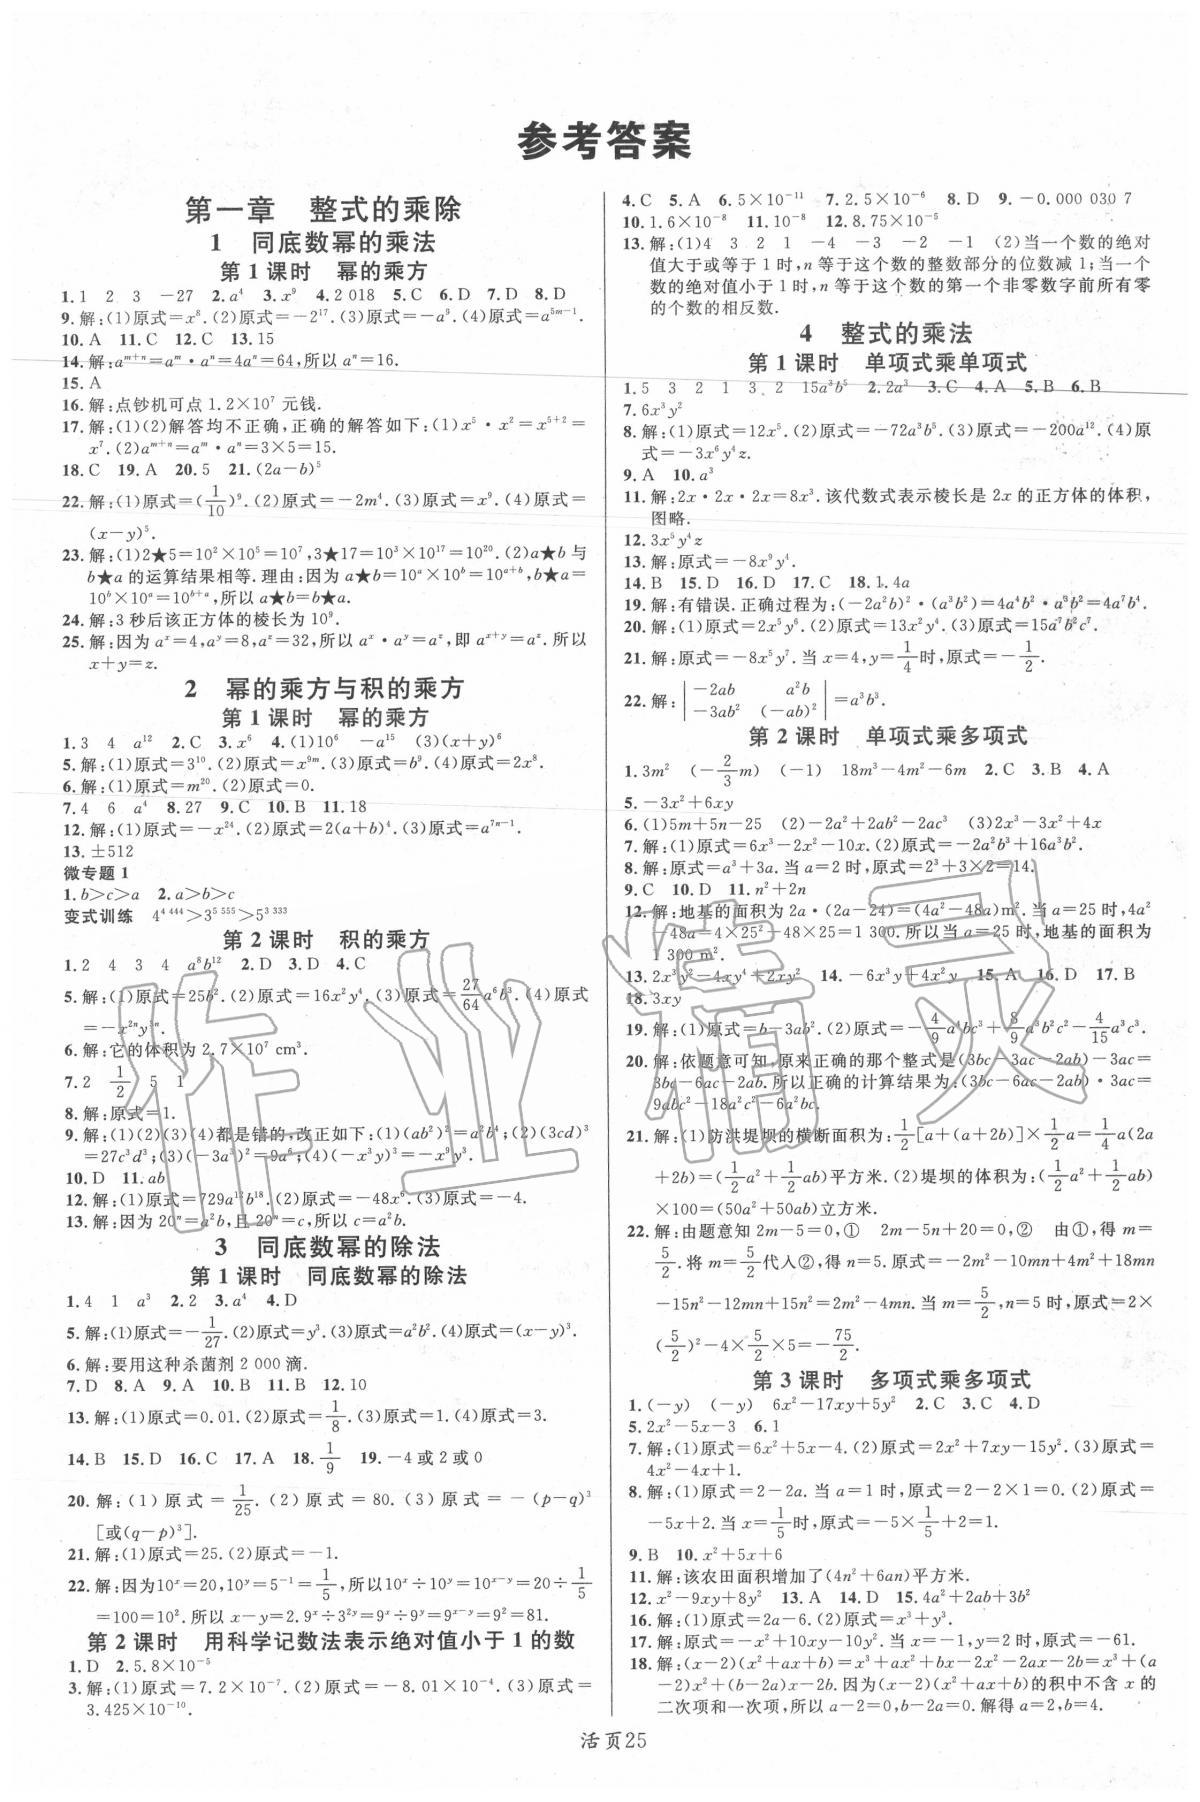 参考答案
第一章 整式的乘除
1 同底数幂的乘法
第1课时 幂的乘方
1.1 2 3 -27 2.a⁴ 3.x⁹ 4.2 018 5.C 6.D 7.D 8.D
9.解:(1)原式=x⁸.(2)原式=-2¹⁷.(3)原式=-a⁹.(4)原式=a⁵ᵐ⁻¹.
10.A 11.C 12.C 13.15
14.解:aᵐ⁺ⁿ=aᵐ·aⁿ=4aⁿ=64,所以aⁿ=16.
15.A
16.解:点钞机可点1.2×10⁷元钱.
17.解:(1)(2)解答均不正确,正确的解答如下:(1)x⁵·x²=x⁵⁺²=
x⁷.(2)aᵐ⁺ⁿ=aᵐ·aⁿ=3×5=15.
18.C 19.A 20.5 21.(2a-b)⁵
22.解:(1)原式=(1/10)⁹.(2)原式=-2m⁴.(3)原式=x⁹.(4)原式=
(x-y)⁵.
23.解:(1)2★5=10²×10⁵=10⁷,3★17=10³×10¹⁷=10²⁰.(2)a★b与
b★a的运算结果相等.理由:因为a★b=10ᵃ×10ᵇ=10ᵃ⁺ᵇ,b★a=
10ᵇ×10ᵃ=10ᵇ⁺ᵃ,所以a★b=b★a.
24.解:3秒后该正方体的棱长为10⁹.
25.解:因为aˣ=4,aʸ=8,aᶻ=32,所以aˣ·aʸ=aᶻ,即aˣ⁺ʸ=aᶻ.所以
x+y=z.
2 幂的乘方与积的乘方
第1课时 幂的乘方
1.3 4 a¹² 2.C 3.x⁶ 4.(1)10⁶ -a¹⁵ (3)(x+y)⁶
5.解:(1)原式=3¹⁰.(2)原式=x⁹ᵐ.(3)原式=b⁹.(4)原式=2x⁸.
6.解:(1)原式=m²⁰.(2)原式=0.
7.4 6 a⁴ 8.27 9.C 10.B 11.18
12.解:(1)原式=-x²⁴.(2)原式=2(a+b)⁴.(3)原式=a⁷ⁿ⁻¹.
13.±512
微专题1
1.b>c>a 2.a>b>c
变式训练 4^{4 444}>3^{5 555}>5^{3 333}
第2课时 积的乘方
1.2 4 3 4 a⁸b¹² 2.D 3.D 4.C
5.解:(1)原式=25b².(2)原式=16x²y⁴.(3)原式=27/64a⁶b³.(4)原式
=-x²ⁿy³ⁿ.
6.解:它的体积为2.7×10⁷ cm³.
7.2 1/2 5 1
8.解:原式=1.
9.解:(1)(2)(3)(4)都是错的,改正如下:(1)(ab²)²=a²b⁴;(2)(3cd)³
=27c³d³;(3)(-3a³)²=9a⁶;(4)(-x³y)³=-x⁹y³.
10.D 11.ab
12.解:(1)原式=729a¹²b¹⁸.(2)原式=-48x⁶.(3)原式=-4.
13.解:因为20ⁿ=a²b,且20ⁿ=c,所以c=a²b.
3 同底数幂的除法
第1课时 同底数幂的除法
1.4 1 a³ 2.2 3.a⁴ 4.D
5.解:(1)原式=-1/27.(2)原式=y³.(3)原式=a²b².(4)原式=(x-y)³.
6.解:要用这种杀菌剂2 000滴.
7.D 8.A 9.A 10.B 11.B 12.10
13.解:(1)原式=0.01.(2)原式=1/8.(3)原式=1.(4)原式=3.
14.B 15.D 16.C 17.A 18.1/9 19.-4或2或0
20.解:(1)原式=1/25.(2)原式=80.(3)原式=-(p-q)³
[或(q-p)³].
21.解:(1)原式=25.(2)原式=-1.
22.解:因为10ˣ=20,10ʸ=5⁻¹=1/5,所以10ˣ÷10ʸ=10ˣ⁻ʸ=20÷1/5
=100=10².所以x-y=2.9ˣ÷3²ʸ=9ˣ÷9ʸ=9ˣ⁻ʸ=9²=81.
第2课时 用科学记数法表示绝对值小于1的数
1.D 2.5.8×10⁻⁵
3.解:(1)原式=7.2×10⁻⁷.(2)原式=-8.01×10⁻⁴.(3)原式=
3.425×10⁻¹⁰.
4.C 5.A 6.5×10⁻¹¹ 7.2.5×10⁻⁶ 8.D 9.-0.000 030 7
10.1.6×10⁻⁸ 11.10⁻⁸ 12.8.75×10⁻⁵
13.解:(1)4 3 2 1 -4 -3 -2 -1 (2)当一个数的绝对
值大于或等于1时,n等于这个数的整数部分的位数减1;当一个
数的绝对值小于1时,n等于这个数的第一个非零数字前所有零
的个数的相反数.
4 整式的乘法
第1课时 单项式乘单项式
1.5 3 2 1 3 2 15a³b⁵ 2.2a³ 3.C 4.A 5.B 6.B
7.6x³y²
8.解:(1)原式=12x⁵.(2)原式=-72a³b⁵.(3)原式=-200a¹².(4)原
式=-3x⁶y⁴z.
9.A 10.a³
11.解:2x·2x·2x=8x³.该代数式表示棱长是2x的正方体的体积,
图略.
12.3x⁵y⁴z
13.解:原式=-8x⁹y⁴.
14.B 15.D 16.D 17.C 18.1.4a
19.解:有错误.正确过程为:(-2a²b)²·(a³b²)=4a⁴b²·a³b²=4a⁷b⁴.
20.解:(1)原式=2x⁵y⁶.(2)原式=13x²y⁴.(3)原式=15a⁷b²c⁷.
21.解:原式=-8x⁵y⁷.当x=4,y=1/4时,原式=-1/2.
22.解:|-2ab a²b; -3ab² (-ab)²|=a³b³.
第2课时 单项式乘多项式
1.3m² (-2/3m) (-1) 18m³-4m²-6m 2.C 3.B 4.A
5.-3x²+6xy
6.(1)5m+5n-25 (2)-2a²+2ab²-2ac³ (3)2x³-3x²+4x
7.解:(1)原式=6x³-2x²-10x.(2)原式=-2a²b³+16a²b².
8.解:原式=a³+3a.当a=2时,原式=2³+3×2=14.
9.C 10.D 11.n²+2n
12.解:地基的面积为2a·(2a-24)=(4a²-48a)m².当a=25时,4a²
-48a=4×25²-48×25=1 300.所以当a=25时,地基的面积为
1 300 m².
13.2x³y²-4xy⁴+2xy² 14.-6x³y+4x²y 15.A 16.D 17.B
18.3xy
19.解:(1)原式=b-3ab².(2)原式=-4/9a⁴bc³+8/9a³b²c²-4/15a³c³.
20.解:依题意可知,原来正确的那个整式是(3bc-3ac-2ab)-3ac=
3bc-6ac-2ab.所以正确的计算结果为:(3bc-6ac-2ab)·3ac=
9abc²-18a²c²-6a²bc.
21.解:(1)防洪堤坝的横断面积为:1/2[a+(a+2b)]×1/2a=1/4a(2a
+2b)=(1/2a²+1/2ab)平方米.(2)堤坝的体积为:(1/2a²+1/2ab)
×100=(50a²+50ab)立方米.
22.解:由题意知2m-5=0,① 2m-5n+20=0,② 由①,得m=
5/2.将m=5/2代入②,得n=5.原式=-2m²-10mn+4m²+18mn
-15n²-12mn+15n²=2m²-4mn.当m=5/2,n=5时,原式=2×
(5/2)²-4×5/2×5=-75/2.
第3课时 多项式乘多项式
1.(-y) (-y) 6x²-17xy+5y² 2.C 3.C 4.D
5.2x²-5x-3 6.1
7.解:(1)原式=6x²+5x-4.(2)原式=2x²+7xy-15y².(3)原式=
4x²-4x+1.
8.解:(1)原式=2-2a.当a=1时,原式=2-2×1=0.(2)原式=
-5x+2.当x=1/5时,原式=-5×1/5+2=1.
9.B 10.x²+5x+6
11.解:该农田面积增加了(4n²+6an)平方米.
12.x²-9xy+8y² 13.A 14.D 15.4a²+2ab+3b²
16.解:(1)原式=2a-6.(2)原式=x³+y³.
17.解:原式=-x²+10xy-10y².当x=-1,y=2时,原式=-61.
18.解:(x-2)(x²+ax+b)=x³+ax²+bx-2x²-2ax-2b=x³+(a
-2)x²+(b-2a)x-2b.因为(x-2)(x²+ax+b)的积中不含x的
二次项和一次项,所以a-2=0,b-2a=0.解得a=2,b=4.
活页25
作业精灵